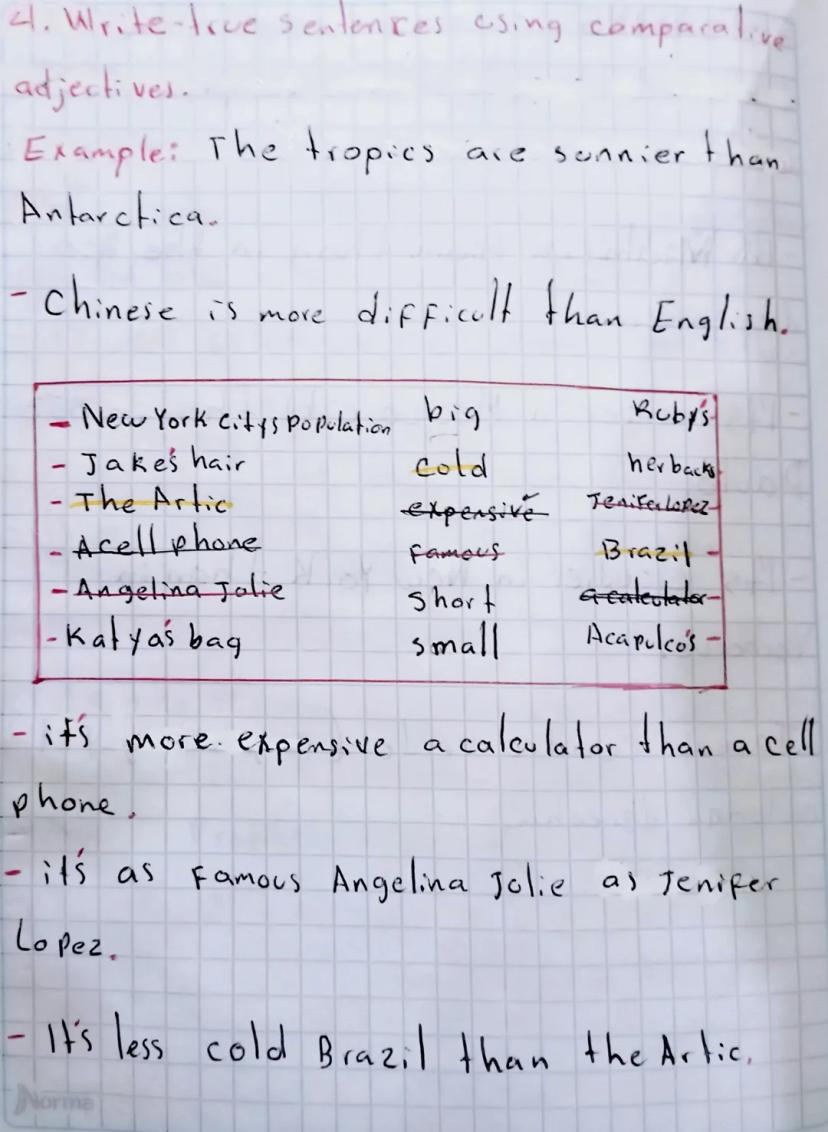 4. Write true sentences using comparative
adjectives.
Example: The tropics are sunnier than
Antarctica.
- Chinese is more difficult than English.
- New York city's population big Ruby's
- Jake's hair cold her backs
- The Artic expensive Jenifer Lopez
- A cell phone famous Brazil -
- Angelina Jolie short a calculator -
- Katya's bag small Acapulco's -
- it's more expensive a calculator than a cell
phone.
- it's as famous Angelina Jolie as Jenifer
Lopez.
- It's less cold Brazil than the Artic.
Norma